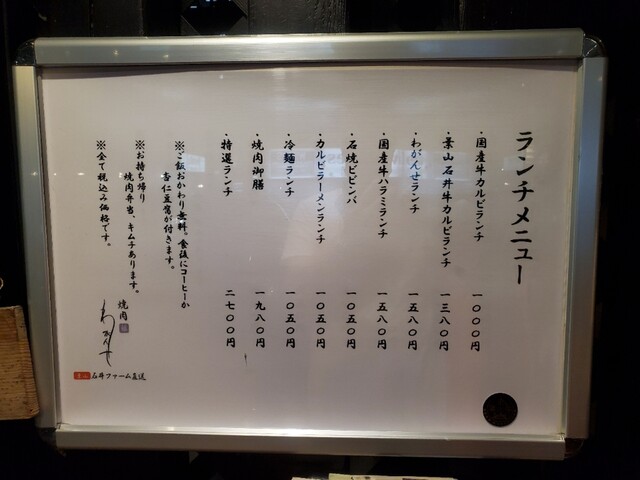 ランチメニュー
・国産牛カルビランチ 一〇〇〇円
・葉山石井牛カルビランチ 一三八〇円
・わがんせランチ 一五八〇円
・国産牛ハラミランチ 一五八〇円
・石焼ビビンバ 一〇五〇円
・カルビラーメンランチ 一〇五〇円
・冷麺ランチ 一〇五〇円
・焼肉御膳 一九八〇円
・特選ランチ 二七〇〇円
※ご飯おかわり無料。食後にコーヒーか
杏仁豆腐が付きます。
※お持ち帰り
焼肉弁当、キムチあります。
※全て税込み価格です。
焼肉
わがんせ
石井ファーム直送